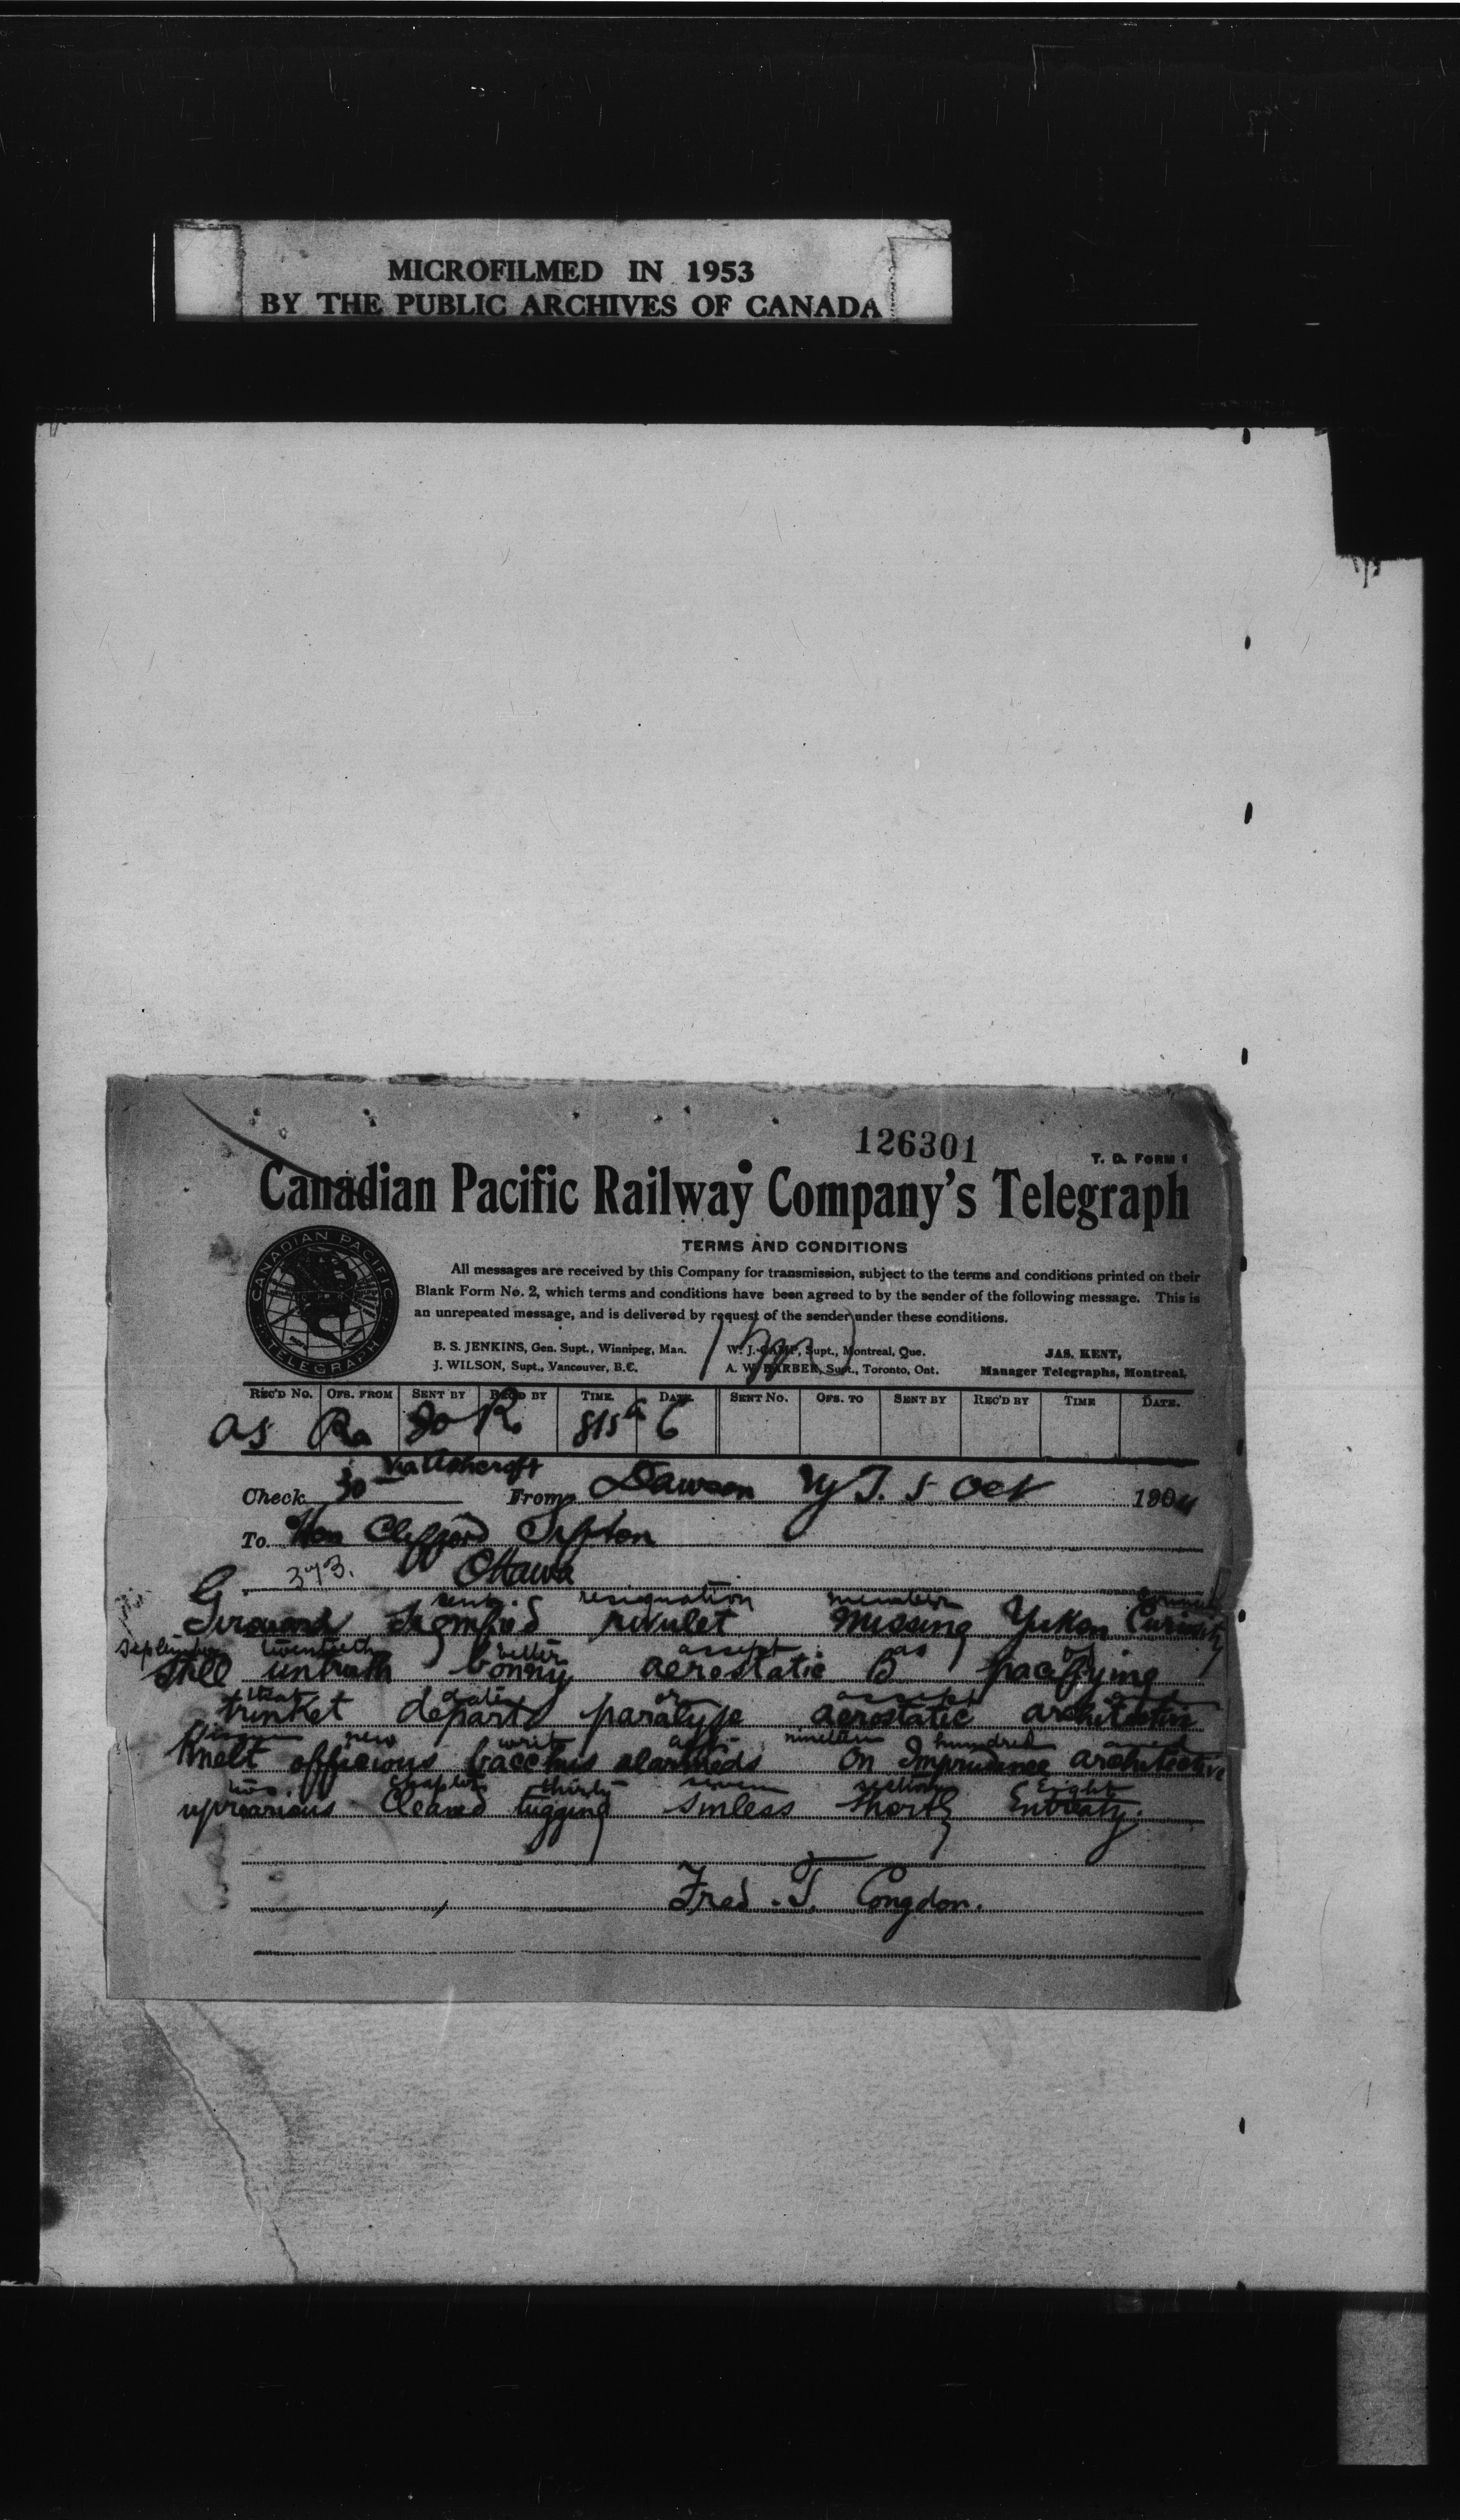 MICROFILMED IN 1953
BY THE PUBLIC ARCHIVES OF CANADA
126301
T. D. FORM 1
Canadian Pacific Railway Company's Telegraph
TERMS AND CONDITIONS
CANADIAN PACIFIC TELEGRAPH
All messages are received by this Company for transmission, subject to the terms and conditions printed on their
Blank Form No. 2, which terms and conditions have been agreed to by the sender of the following message. This is
an unrepeated message, and is delivered by request of the sender under these conditions.
B. S. JENKINS, Gen. Supt., Winnipeg, Man. W. J. CAMP, Supt., Montreal, Que. JAS. KENT,
J. WILSON, Supt., Vancouver, B.C. A. W. BARBER, Supt., Toronto, Ont. Manager Telegraphs, Montreal.
REC'D NO. OFS. FROM SENT BY REC'D BY TIME DATE. SENT NO. OFS. TO SENT BY REC'D BY TIME DATE.
as Ra 815a 6
Via Ashcroft
Check 30 From Dawson Y.T. 5 Oct 1904
To Hon Clifford Sifton
373. Ottawa
sent resignation member council
rivulet missing Yukon Curiosity
September twentieth better accept as of
Still untruth bonny aerostatic B pacifying
that date or accept and
trinket depart paralyse aerostatic architective
new writ act nineteen hundred and
melt officious bacchus alarmeds On Imprudence architective
two chapter thirty seven section Eight
uproarious Cleared tugging sinless thorth Entreaty.
Fred. T. Congdon.